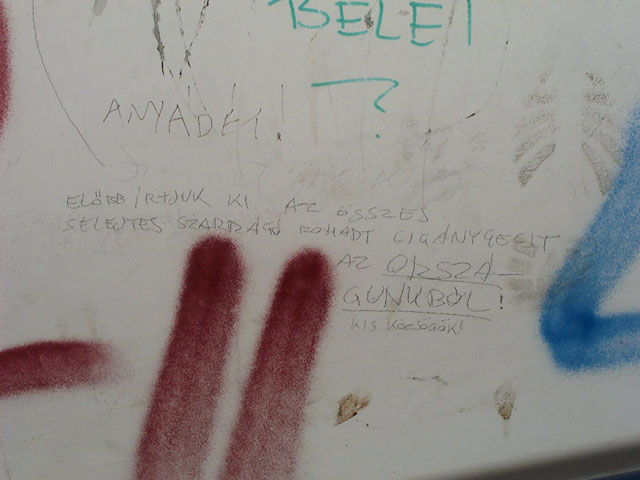 BELET
?
ANYÁDÉT!
ELŐBB ÍRTJUK KI AZ ÖSSZES
SELEJTES SZARRÁGÓ ROHADT CIGÁNYGECIT
AZ ORSZÁ-
GUNKBÓL!
KIS KÖCSÖGÖK!